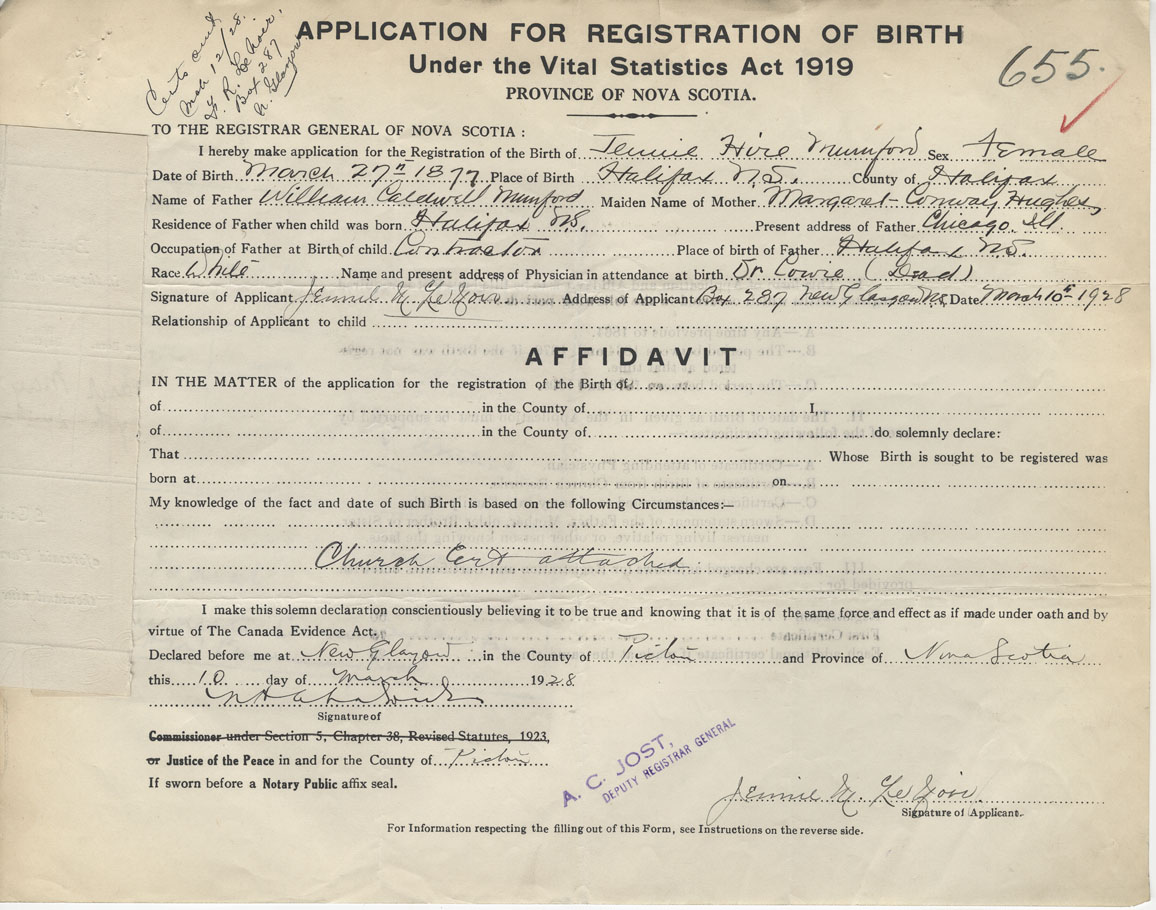 Certs out
Mch 12/28.
Box 287
N. Glasgow
APPLICATION FOR REGISTRATION OF BIRTH
Under the Vital Statistics Act 1919
655.
PROVINCE OF NOVA SCOTIA.
TO THE REGISTRAR GENERAL OF NOVA SCOTIA :
I hereby make application for the Registration of the Birth of Jennie Mumford Sex Female
Date of Birth March 27th 1877 Place of Birth Halifax N.S. County of Halifax
Name of Father William Caldwell Mumford Maiden Name of Mother Margaret Conway Hughes
Residence of Father when child was born Halifax NS. Present address of Father Chicago. Ill.
Occupation of Father at Birth of child Contractor Place of birth of Father Halifax NS.
Race White Name and present address of Physician in attendance at birth Dr Cowie (Dead)
Signature of Applicant Jennie M. Address of Applicant Box 287 New Glasgow NS, Date March 10th 1928
Relationship of Applicant to child
AFFIDAVIT
IN THE MATTER of the application for the registration of the Birth of
of in the County of I,
of in the County of do solemnly declare:
That Whose Birth is sought to be registered was
born at on
My knowledge of the fact and date of such Birth is based on the following Circumstances:—
Church Cert attached.
I make this solemn declaration conscientiously believing it to be true and knowing that it is of the same force and effect as if made under oath and by
virtue of The Canada Evidence Act.
Declared before me at New Glasgow in the County of Pictou and Province of Nova Scotia
this 10 day of March 1928
Signature of
Commissioner under Section 5, Chapter 38, Revised Statutes, 1923,
or Justice of the Peace in and for the County of Pictou
If sworn before a Notary Public affix seal.
A. C. JOST,
DEPUTY REGISTRAR GENERAL
Jennie M.
Signature of Applicant.
For Information respecting the filling out of this Form, see Instructions on the reverse side.